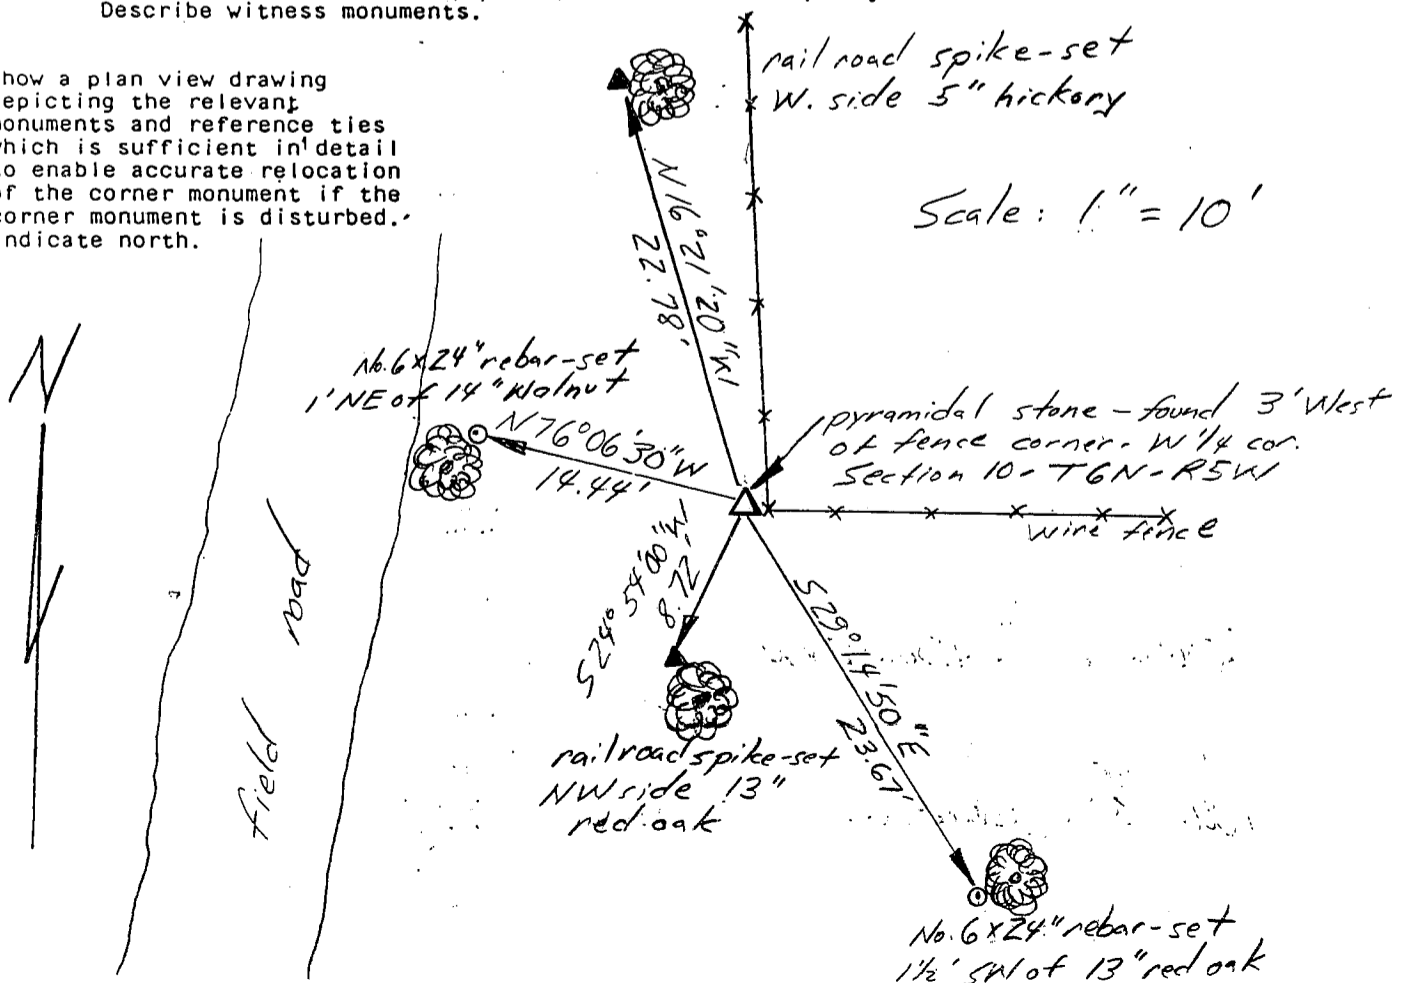 Describe witness monuments.
how a plan view drawing
epicting the relevant
onuments and reference ties
hich is sufficient in detail
o enable accurate relocation
f the corner monument if the
corner monument is disturbed.
ndicate north.
rail road spike-set
W. side 5" hickory
Scale: 1" = 10'
N16°21'20"W
22.78'
No.6x24" rebar-set
1' NE of 14" Walnut
N76°06'30"W
14.44'
pyramidal stone - found 3' West
of fence corner. W 1/4 cor.
Section 10-T6N-R5W
wire fence
N
S24°54'00"W
8.72'
S29°14'50"E
23.67'
field road
railroad spike-set
NW side 13"
red oak
No.6x24" rebar-set
1½' SW of 13" red oak